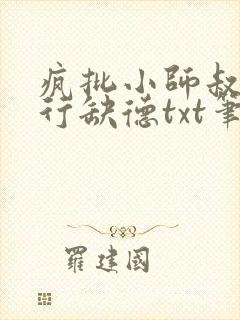 疯批小师叔
行缺德txt筆
羅建國